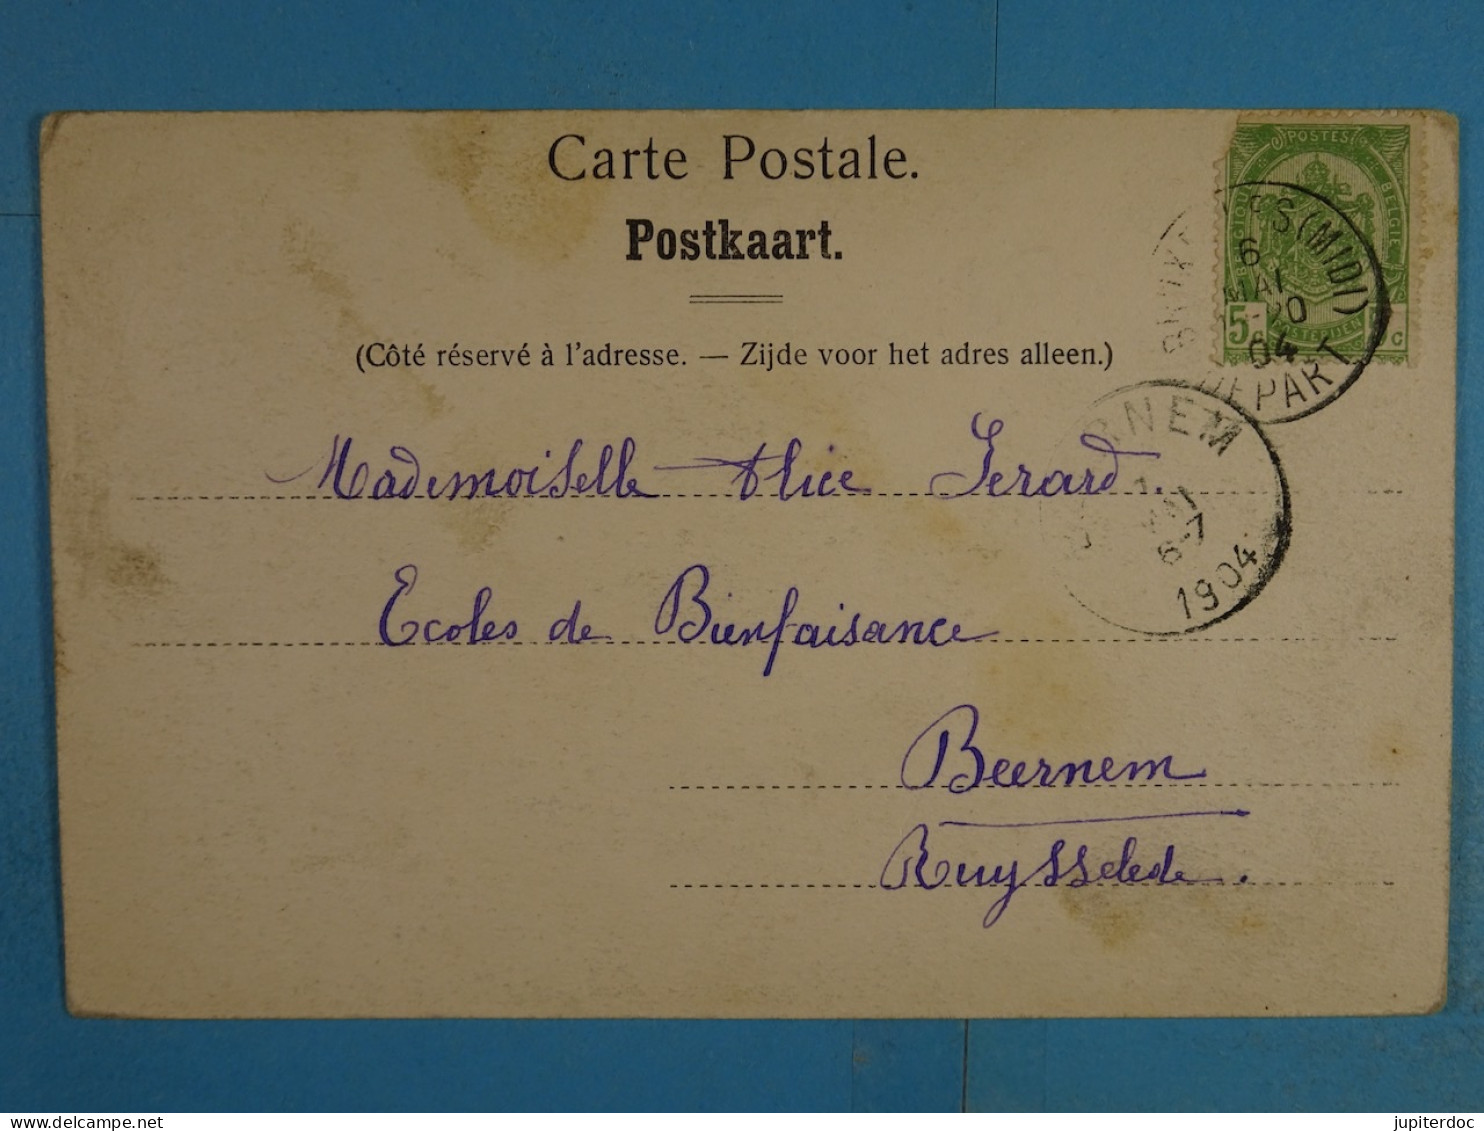 Carte Postale.
Postkaart.
(Côté réservé à l'adresse. — Zijde voor het adres alleen.)
POSTES
BELGIQUE BELGIE
5 c
POSTERIJEN
(MIDI)
6
MAI
20
04
DEPART
Mademoiselle Alice Gerard.
RNEM
MAI
6-7
1904
Ecoles de Bienfaisance
Beernem
Ruysselede.
delcampe.net
jupiterdoc